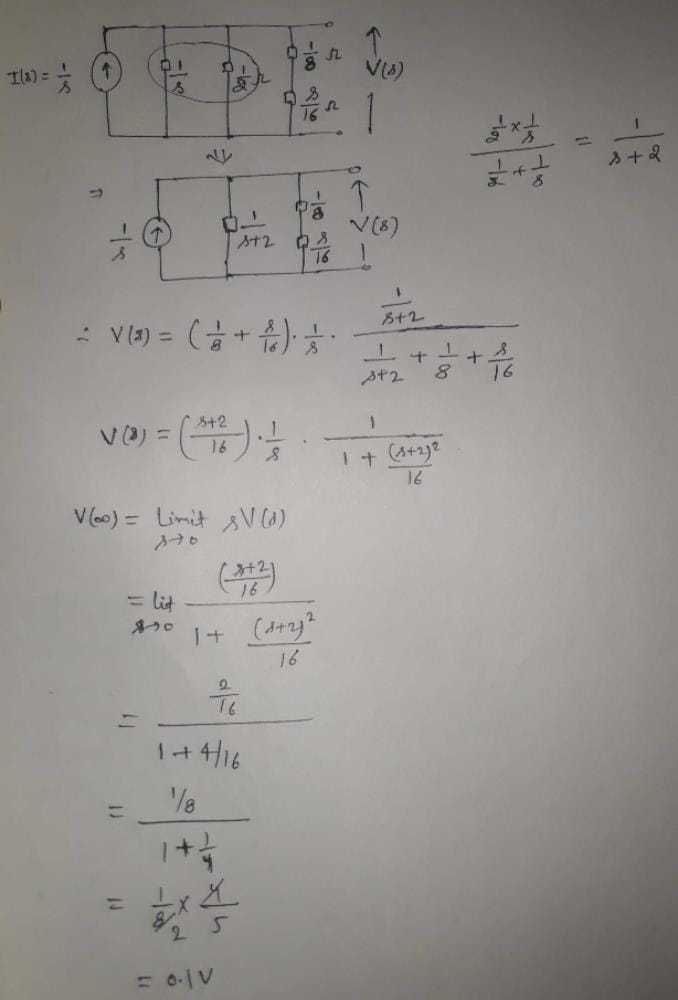 I(s) = 1/s ↑ 1/s 1/2 Ω 1/8 Ω s/16 Ω V(s)
(1/2 × 1/s)/(1/2 + 1/s) = 1/(s+2)
⇒ 1/s ↑ 1/(s+2) 1/8 s/16 V(s)
∴ V(s) = (1/8 + s/16) · 1/s · (1/(s+2))/(1/(s+2) + 1/8 + s/16)
V(s) = ((s+2)/16) · 1/s · 1/(1 + (s+2)²/16)
V(∞) = Limit s→0 sV(s)
= Lit s→0 ((s+2)/16)/(1 + (s+2)²/16)
= (2/16)/(1 + 4/16)
= (1/8)/(1 + 1/4)
= 1/8 2 × 4/5
= 0.1V